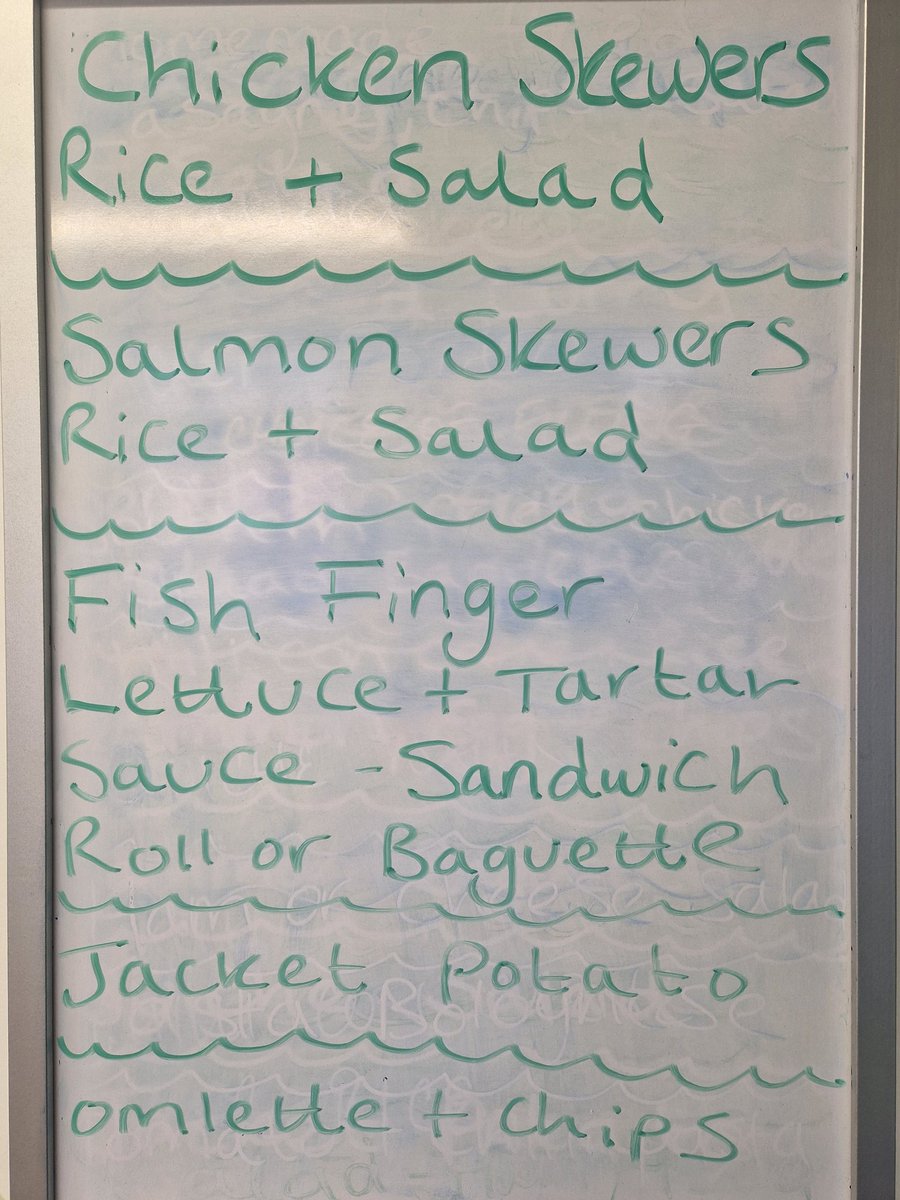 Chicken Skewers
Rice + Salad
Salmon Skewers
Rice + Salad
Fish Finger
Lettuce + Tartar
Sauce - Sandwich
Roll or Baguette
Jacket Potato
omlette + chips